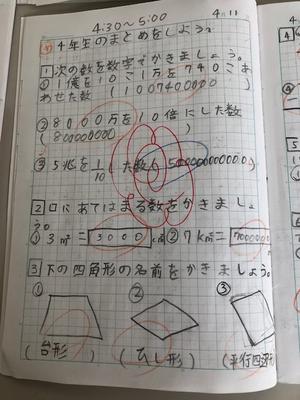 4:30~5:00 4月11
め 4年生のまとめをしよう。
1 次の数を数字でかきましょう。
① 1億を10こ1万を740こあ
わせた数 (1007400000)
② 8000万を10倍にした数
(800000000)
③ 5兆を1/10にした数 (500000000000)
2 □にあてはまる数をかきましょ
う。
① 3m²=30000cm² ② 7km²=7000000
3 下の四角形の名前をかきましょう。
① ② ③
(台形) (ひし形) (平行四辺
4
④